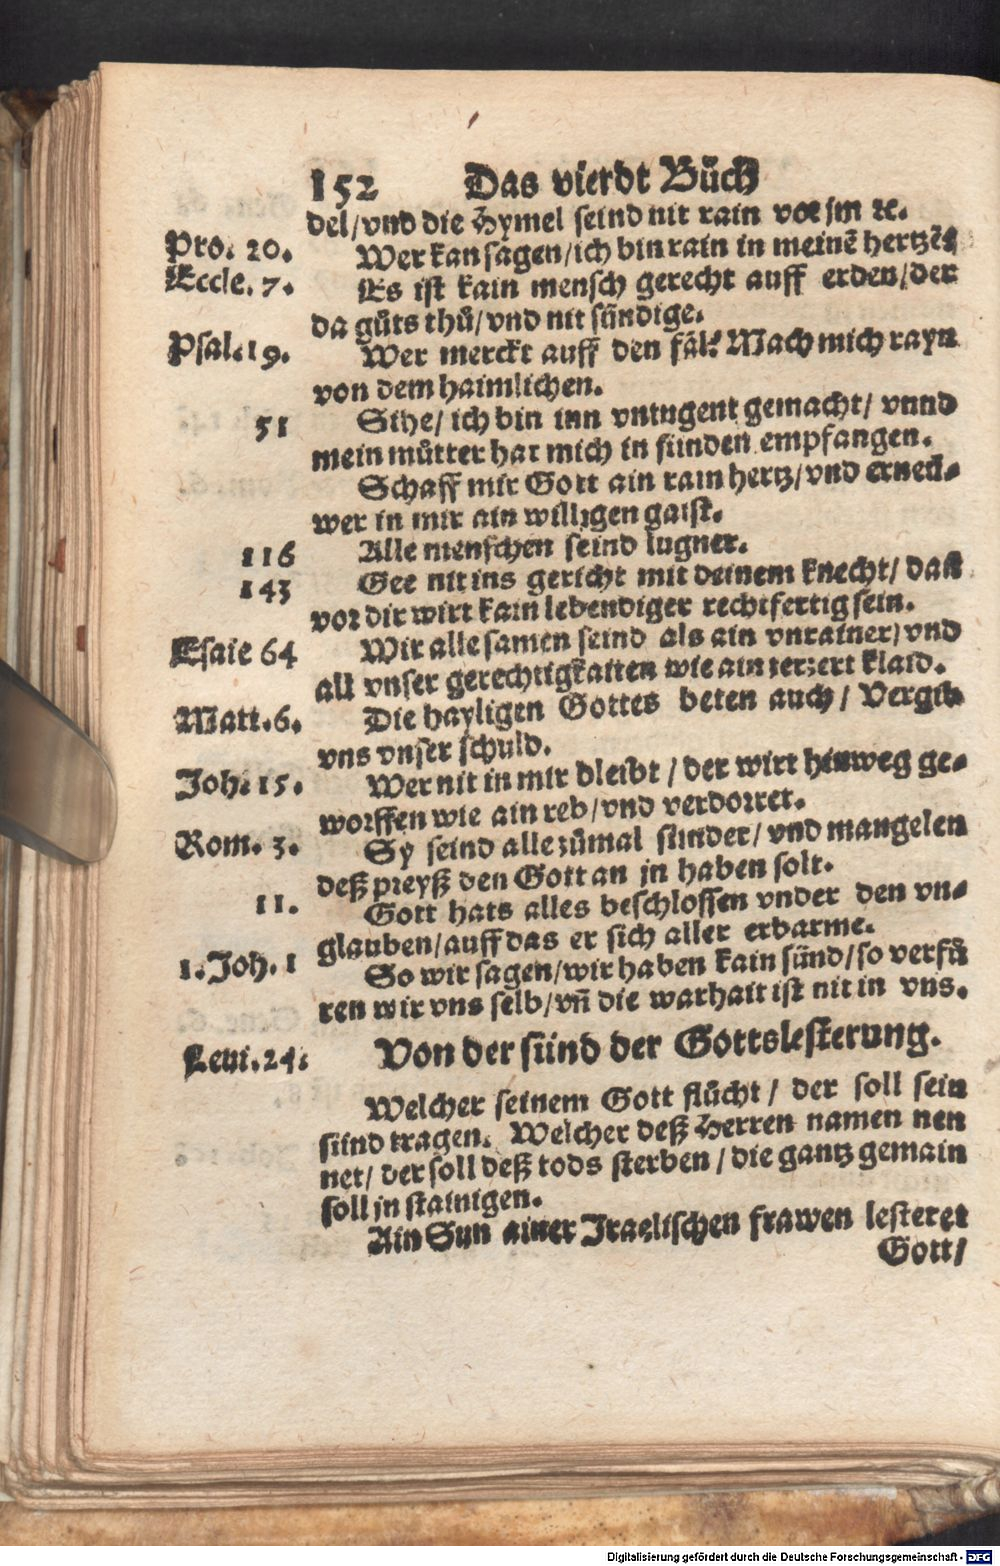 152 Das vierdt Bůch
del/vnd die Hymel seind nit rain vor jm ⁊c.
Pro. 20. Wer kan sagen/ich bin rain in meinē hertzē?
Eccle. 7. Es ist kain mensch gerecht auff erden/der
da gůts thů/vnd nit sündige.
Psal.19. Wer merckt auff den fäl? Mach mich rayn
von dem haimlichen.
51 Sihe/ ich bin inn vntugent gemacht/ vnnd
mein můtter hat mich in sünden empfangen.
Schaff mir Gott ain rain hertz/vnd erneü-
wer in mir ain willigen gaist.
116 Alle menschen seind lugner.
143 Gee nit ins gericht mit deinem knecht/ daß
vor dir wirt kain lebendiger rechtfertig sein.
Esaie 64 Wir alle samen seind als ain vnrainer/ vnd
all vnser gerechtigkaiten wie ain zerzert klaid.
Matt.6. Die hayligen Gottes beten auch/ Vergib
vns vnser schuld.
Joh. 15. Wer nit in mir bleibt/der wirt hinweg ge-
worffen wie ain reb/vnd verdorret.
Rom. 3. Sy seind alle zůmal sünder/vnd mangelen
deß preyß den Gott an jn haben solt.
11. Gott hats alles beschlossen vnder den vn-
glauben/auff das er sich aller erbarme.
1.Joh. 1 So wir sagen/wir haben kain sünd/so verfů
ren wir vns selb/vñ die warhait ist nit in vns.
Leui.24. Von der sünd der Gottslesterung.
Welcher seinem Gott flůcht/ der soll sein
sünd tragen. Welcher deß Herren namen nen
net/ der soll deß tods sterben/die gantz gemain
soll jn stainigen.
Ain Sun ainer Israelischen frawen lesteret
Gott/
Digitalisierung gefördert durch die Deutsche Forschungsgemeinschaft - DFG